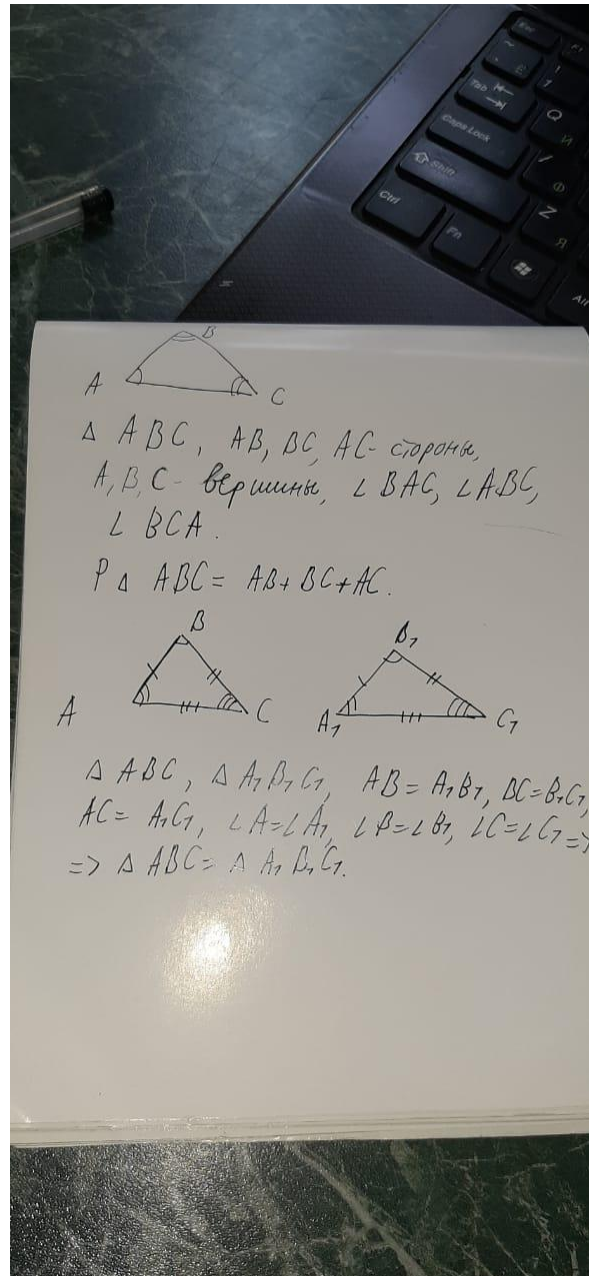 Esc
F1
~
Ё
!
1
Tab
Q
Й
Caps Lock
Ф
Shift
Z
Я
Ctrl
Fn
Alt
B
A
C
Δ ABC, AB, BC, AC - стороны,
A, B, C - вершины, ∠BAC, ∠ABC,
∠ BCA.
P Δ ABC = AB + BC + AC.
B
B₁
A
C
A₁
C₁
Δ ABC, Δ A₁B₁C₁, AB = A₁B₁, BC = B₁C₁,
AC = A₁C₁, ∠A = ∠A₁, ∠B = ∠B₁, ∠C = ∠C₁ =>
=> Δ ABC = Δ A₁B₁C₁.